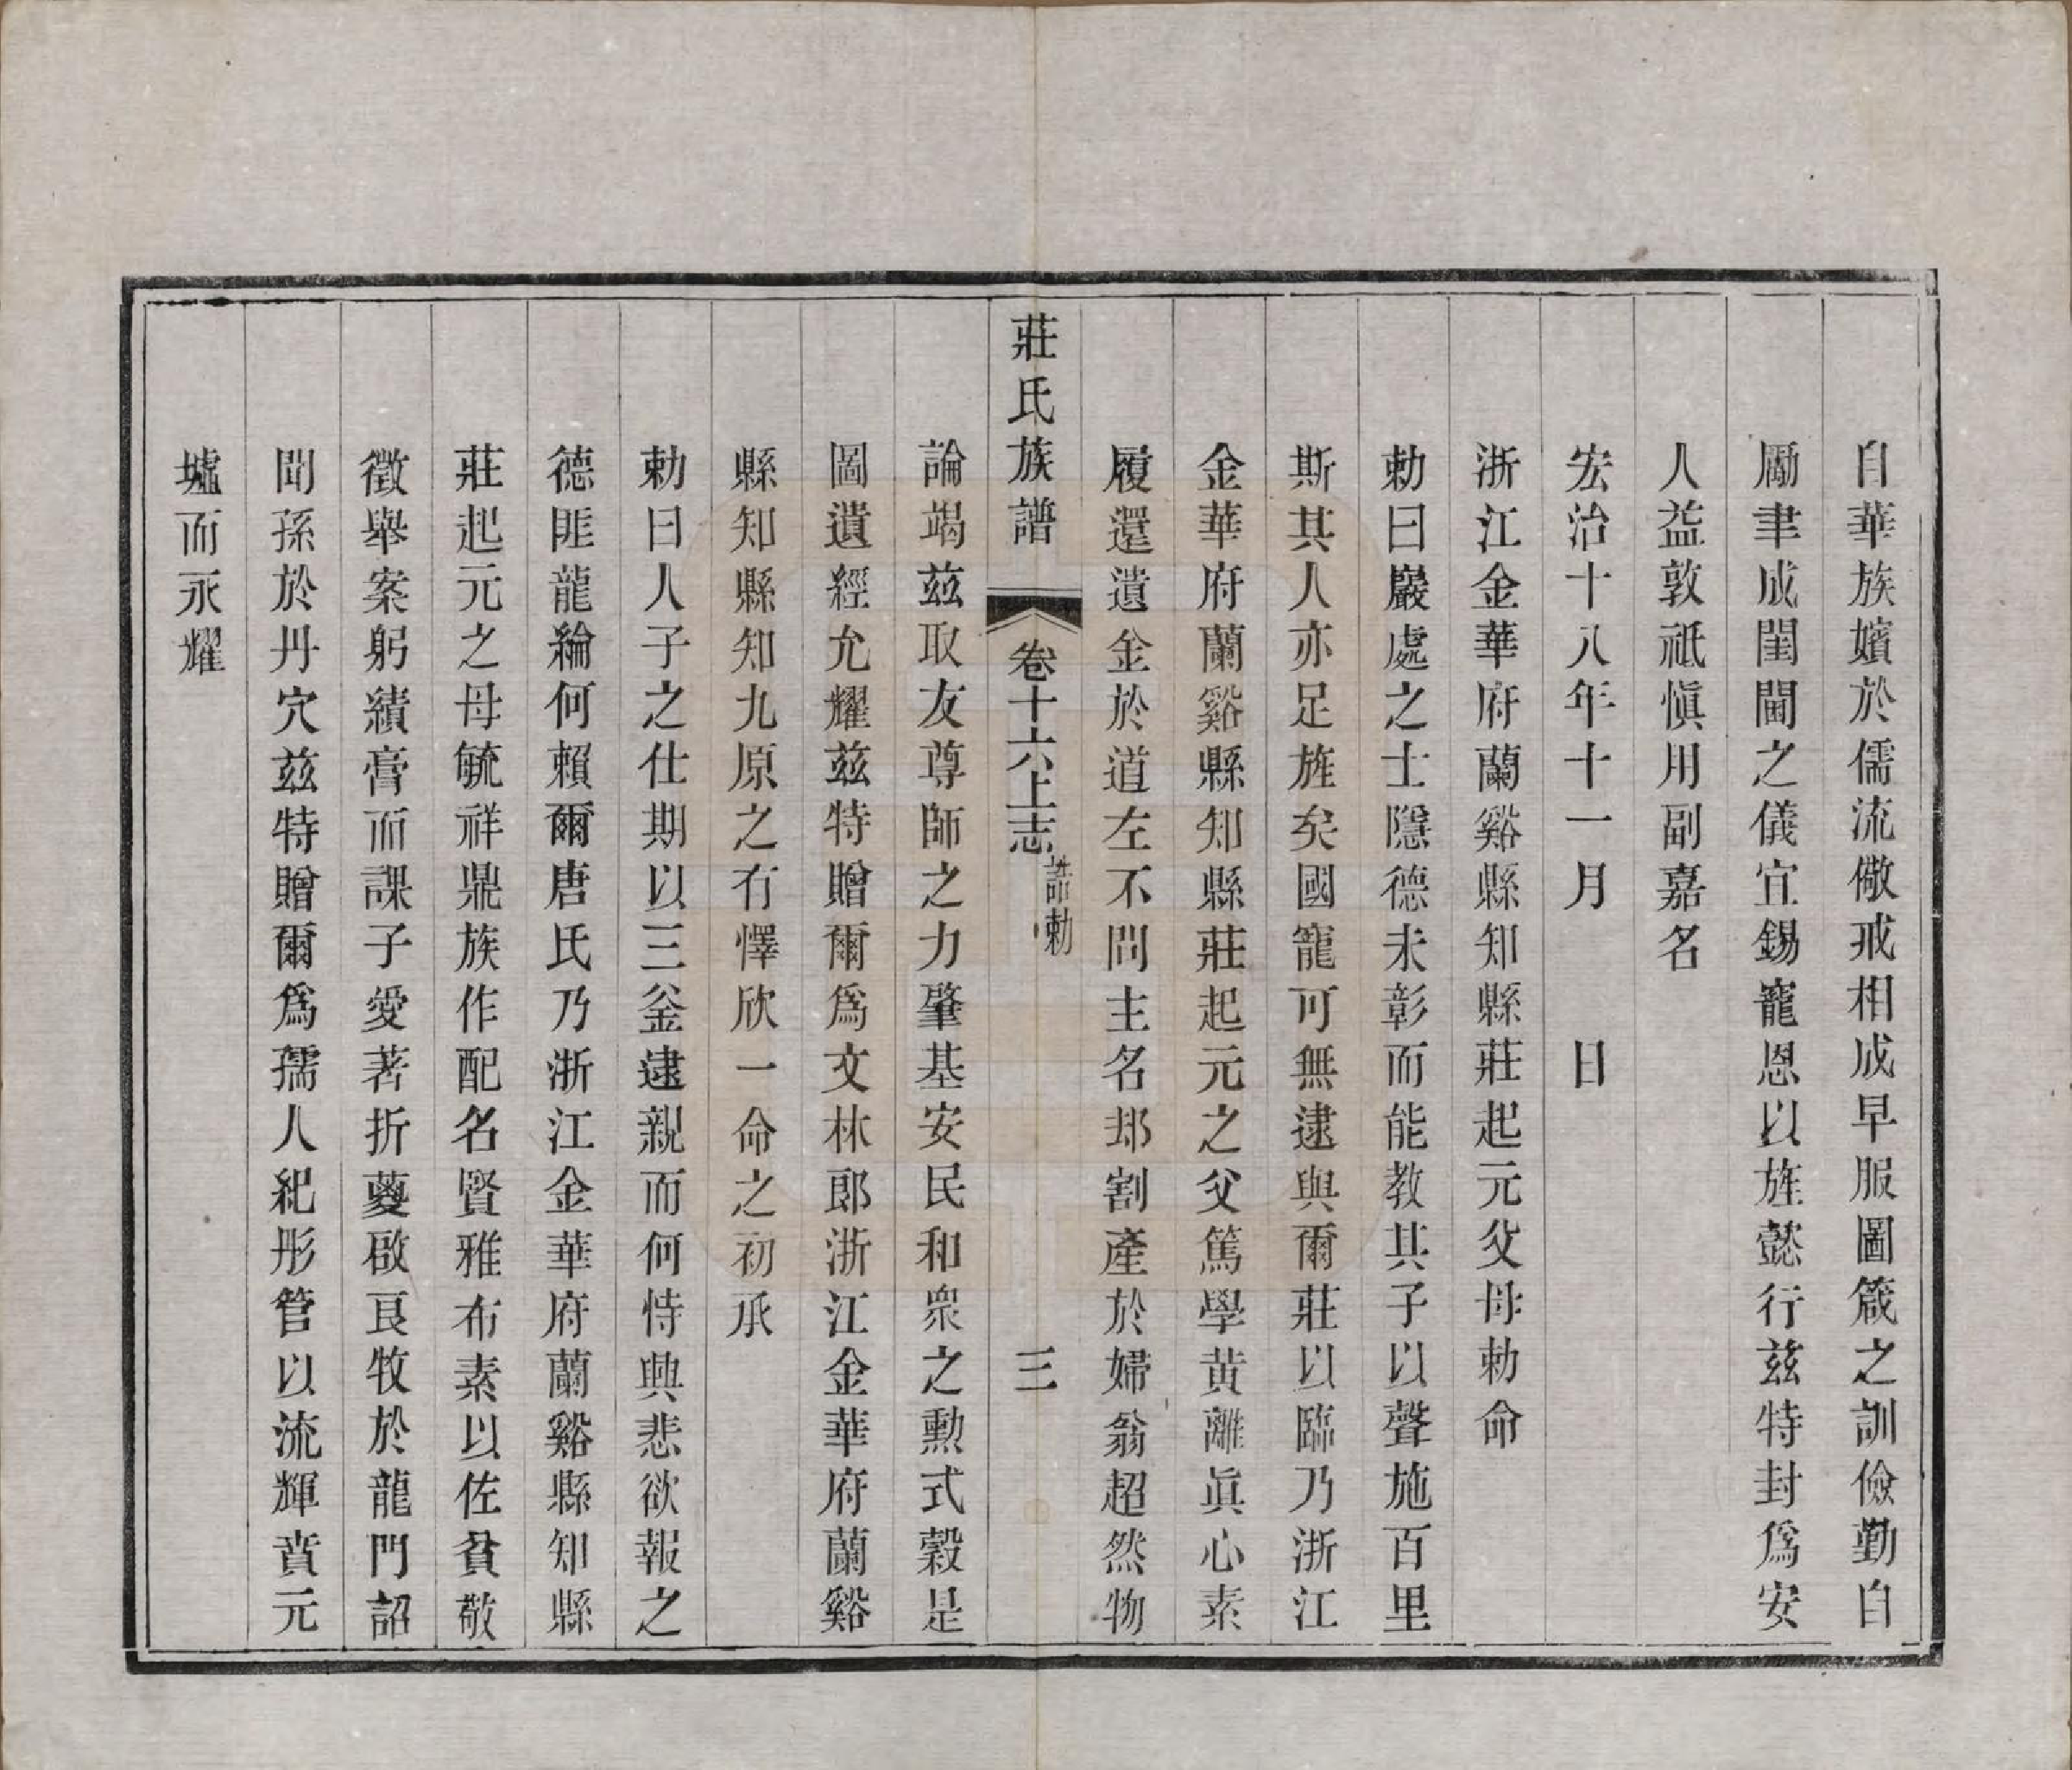 自華族嬪於儒流儆戒相成早服圖箴之訓儉勤自
勵聿成閨閫之儀宜錫寵恩以旌懿行兹特封爲安
人益敦祇愼用副嘉名
宏治十八年十一月　　日
浙江金華府蘭谿縣知縣莊起元父母勅命
勅曰巖處之士隱德未彰而能敎其子以聲施百里
斯其人亦足旌矣國寵可無逮與爾莊以臨乃浙江
金華府蘭谿縣知縣莊起元之父篤學黄離眞心素
履還遺金於道左不問主名却割產於婦翁超然物
莊氏族譜　卷十六上志　誥勅　三
論竭兹取友尊師之力肇基安民和衆之勲式穀是
圖遺經允耀兹特贈爾爲文林郎浙江金華府蘭谿
縣知縣知九原之有懌欣一命之初承
勅曰人子之仕期以三釜逮親而何恃興悲欲報之
德匪龍綸何賴爾唐氏乃浙江金華府蘭谿縣知縣
莊起元之母毓祥鼎族作配名賢雅布素以佐貧敬
徵舉案躬績膏而課子愛著折葼啟良牧於龍門詔
聞孫於丹穴兹特贈爾爲孺人紀彤管以流輝賁元
墟而永耀